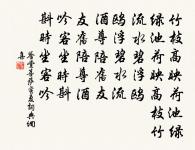 竹枝高映荷池綠
綠池荷映高枝竹
流水碧浮鷗
鷗浮碧水流
酒尊陪舊友
友舊陪尊酒
吟客坐時斟
斟時坐客吟